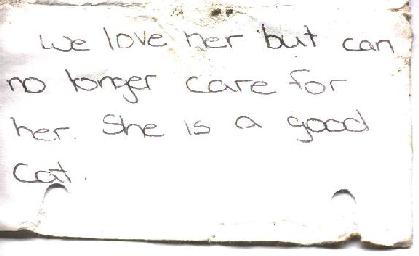 We love her but can
no longer care for
her. She is a good
cat.